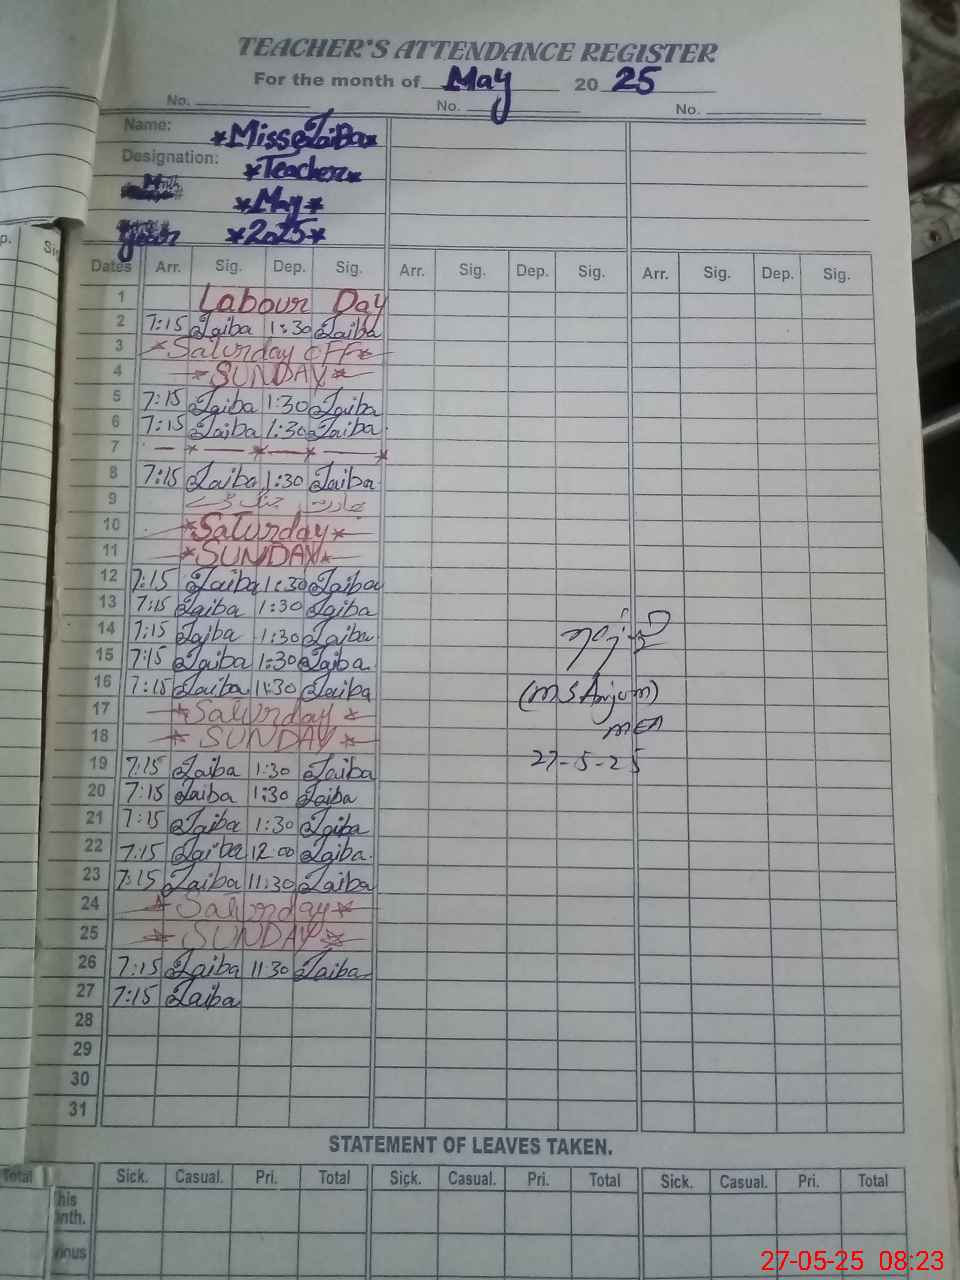 TEACHER'S ATTENDANCE REGISTER
For the month of May 2025
No. No. No.
Name: *Miss Zaiba*
Designation: *Teacher*
Month *May*
Year *2025*
Dates Arr. Sig. Dep. Sig. Arr. Sig. Dep. Sig. Arr. Sig. Dep. Sig.
1 Labour Day
2 7:15 Zaiba 1:30 Zaiba
3 *Saturday OFF*
4 *SUNDAY*
5 7:15 Zaiba 1:30 Zaiba
6 7:15 Zaiba 1:30 Zaiba
7 — * — * — *
8 7:15 Zaiba 1:30 Zaiba
9 بھارت جنگ
10 *Saturday*
11 *SUNDAY*
12 7:15 Zaiba 1:30 Zaiba
13 7:15 Zaiba 1:30 Zaiba
14 7:15 Zaiba 1:30 Zaiba
15 7:15 Zaiba 1:30 Zaiba
16 7:15 Zaiba 11:30 Zaiba
(M S Anjum)
17 *Saturday*
MEA
18 *SUNDAY*
27-5-25
19 7:15 Zaiba 1:30 Zaiba
20 7:15 Zaiba 1:30 Zaiba
21 7:15 Zaiba 1:30 Zaiba
22 7:15 Zaiba 12:00 Zaiba
23 7:15 Zaiba 11:30 Zaiba
24 *Saturday*
25 *SUNDAY*
26 7:15 Zaiba 11:30 Zaiba
27 7:15 Zaiba
28
29
30
31
STATEMENT OF LEAVES TAKEN.
Total Sick. Casual. Pri. Total Sick. Casual. Pri. Total Sick. Casual. Pri. Total
27-05-25 08:23